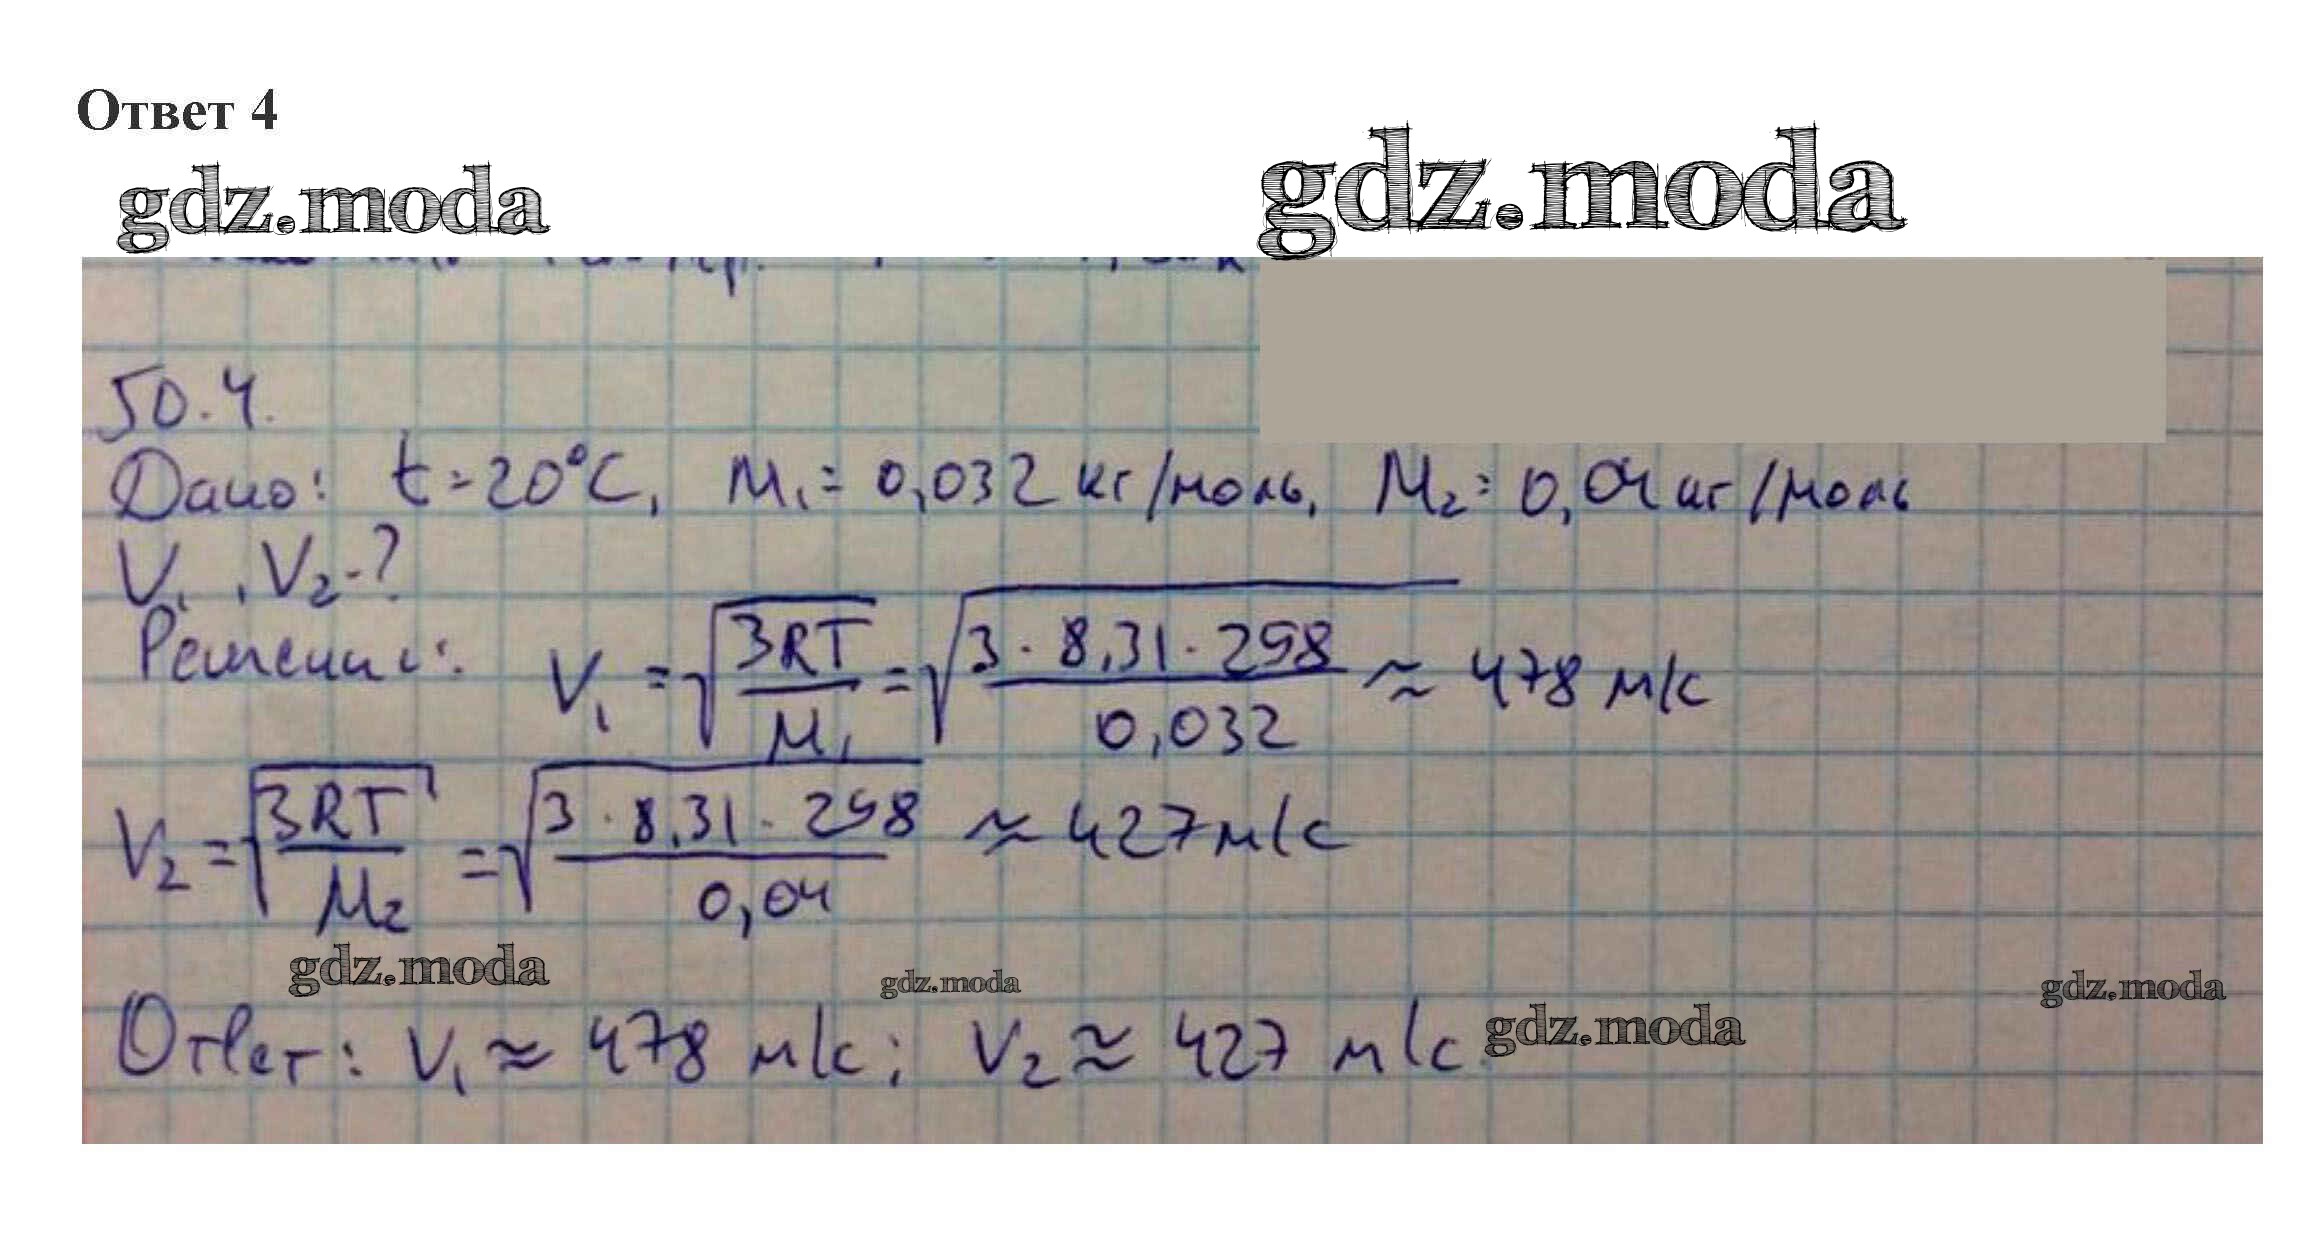 Ответ 4
gdz.moda
gdz.moda
50.4.
Дано: t = 20°C, M₁ = 0,032 кг/моль, M₂ = 0,04 кг/моль
V₁, V₂ - ?
Решение: V₁ = √(3RT/M₁) = √(3 · 8,31 · 298/0,032) ≈ 478 м/с
V₂ = √(3RT/M₂) = √(3 · 8,31 · 298/0,04) ≈ 427 м/с
gdz.moda
gdz.moda
gdz.moda
Ответ: V₁ ≈ 478 м/с; V₂ ≈ 427 м/с
gdz.moda